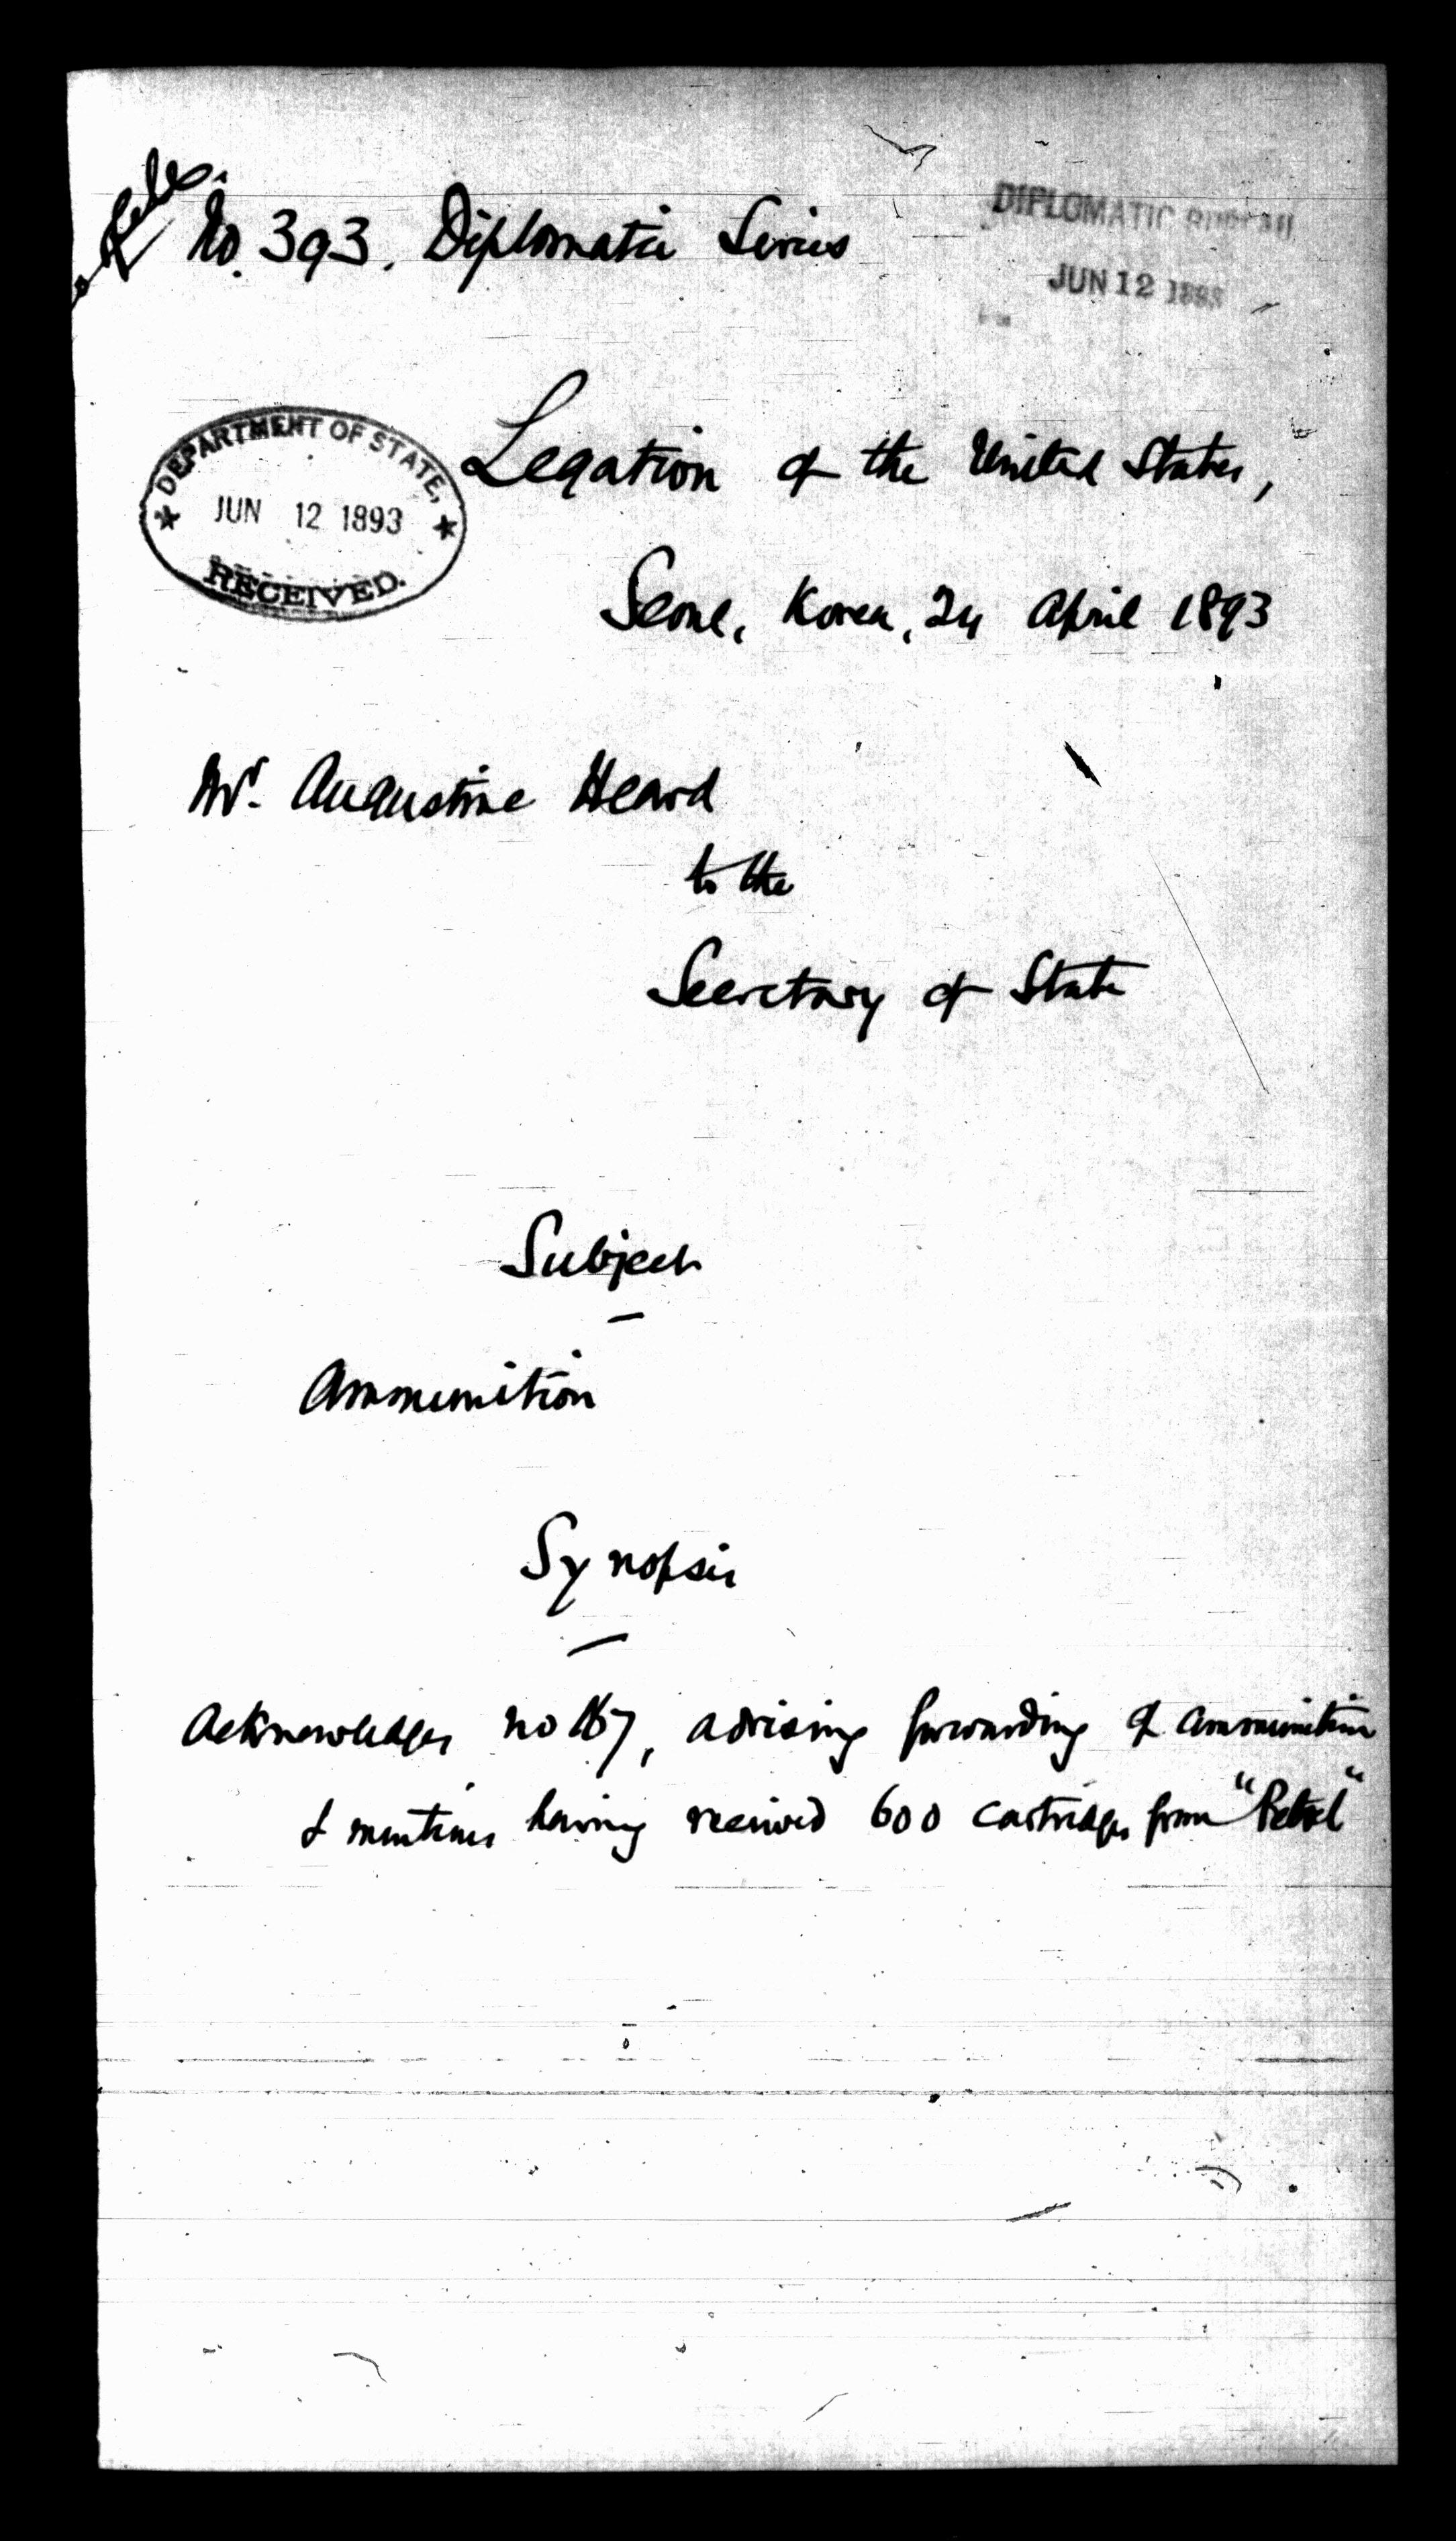 No. 393. Diplomatic Series
DIPLOMATIC BUREAU
JUN 12 1893
DEPARTMENT OF STATE,
JUN 12 1893
RECEIVED.
Legation of the United States,
Seoul, Korea, 24 April 1893
Mr. Augustine Heard
to the
Secretary of State
Subject
Ammunition
Synopsis
Acknowledges no 167, advising forwarding of ammunition
& mentions having received 600 cartridges from "Petrel"